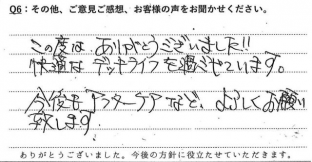 Q6：その他、ご意見ご感想、お客様の声をお聞かせください。
この度は ありがとうございました!!
快適な デッキライフを過ごせています。
今後も アフターケア など、よろしくお願い
致します
ありがとうございました。今後の方針に役立たせていただきます。